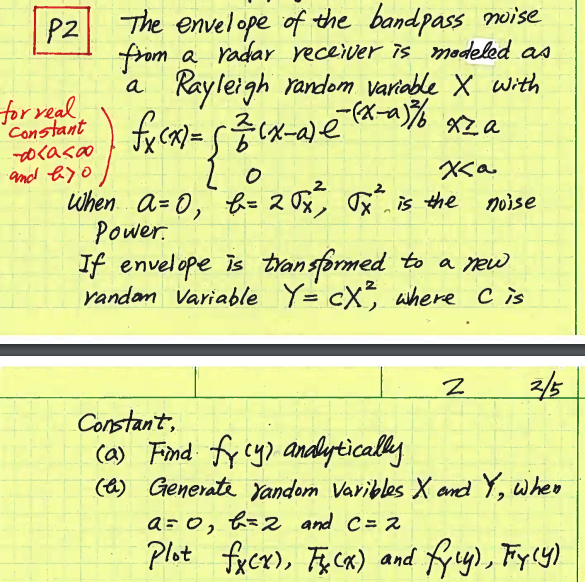 P2 The envelope of the bandpass noise
from a radar receiver is modeled as
a Rayleigh random variable X with
for real
constant
-∞<a<∞
and b>0
f_X(x)= { 2/b (x-a) e^{-(x-a)²/b} x≥a
0 x<a
When a=0, b= 2σ_X², σ_X² is the noise
power.
If envelope is transformed to a new
random variable Y= cX², where C is
2 2/5
Constant,
(a) Find f_Y(y) analytically
(b) Generate random Varibles X and Y, when
a=0, b=2 and C=2
Plot f_X(x), F_X(x) and f_Y(y), F_Y(y)